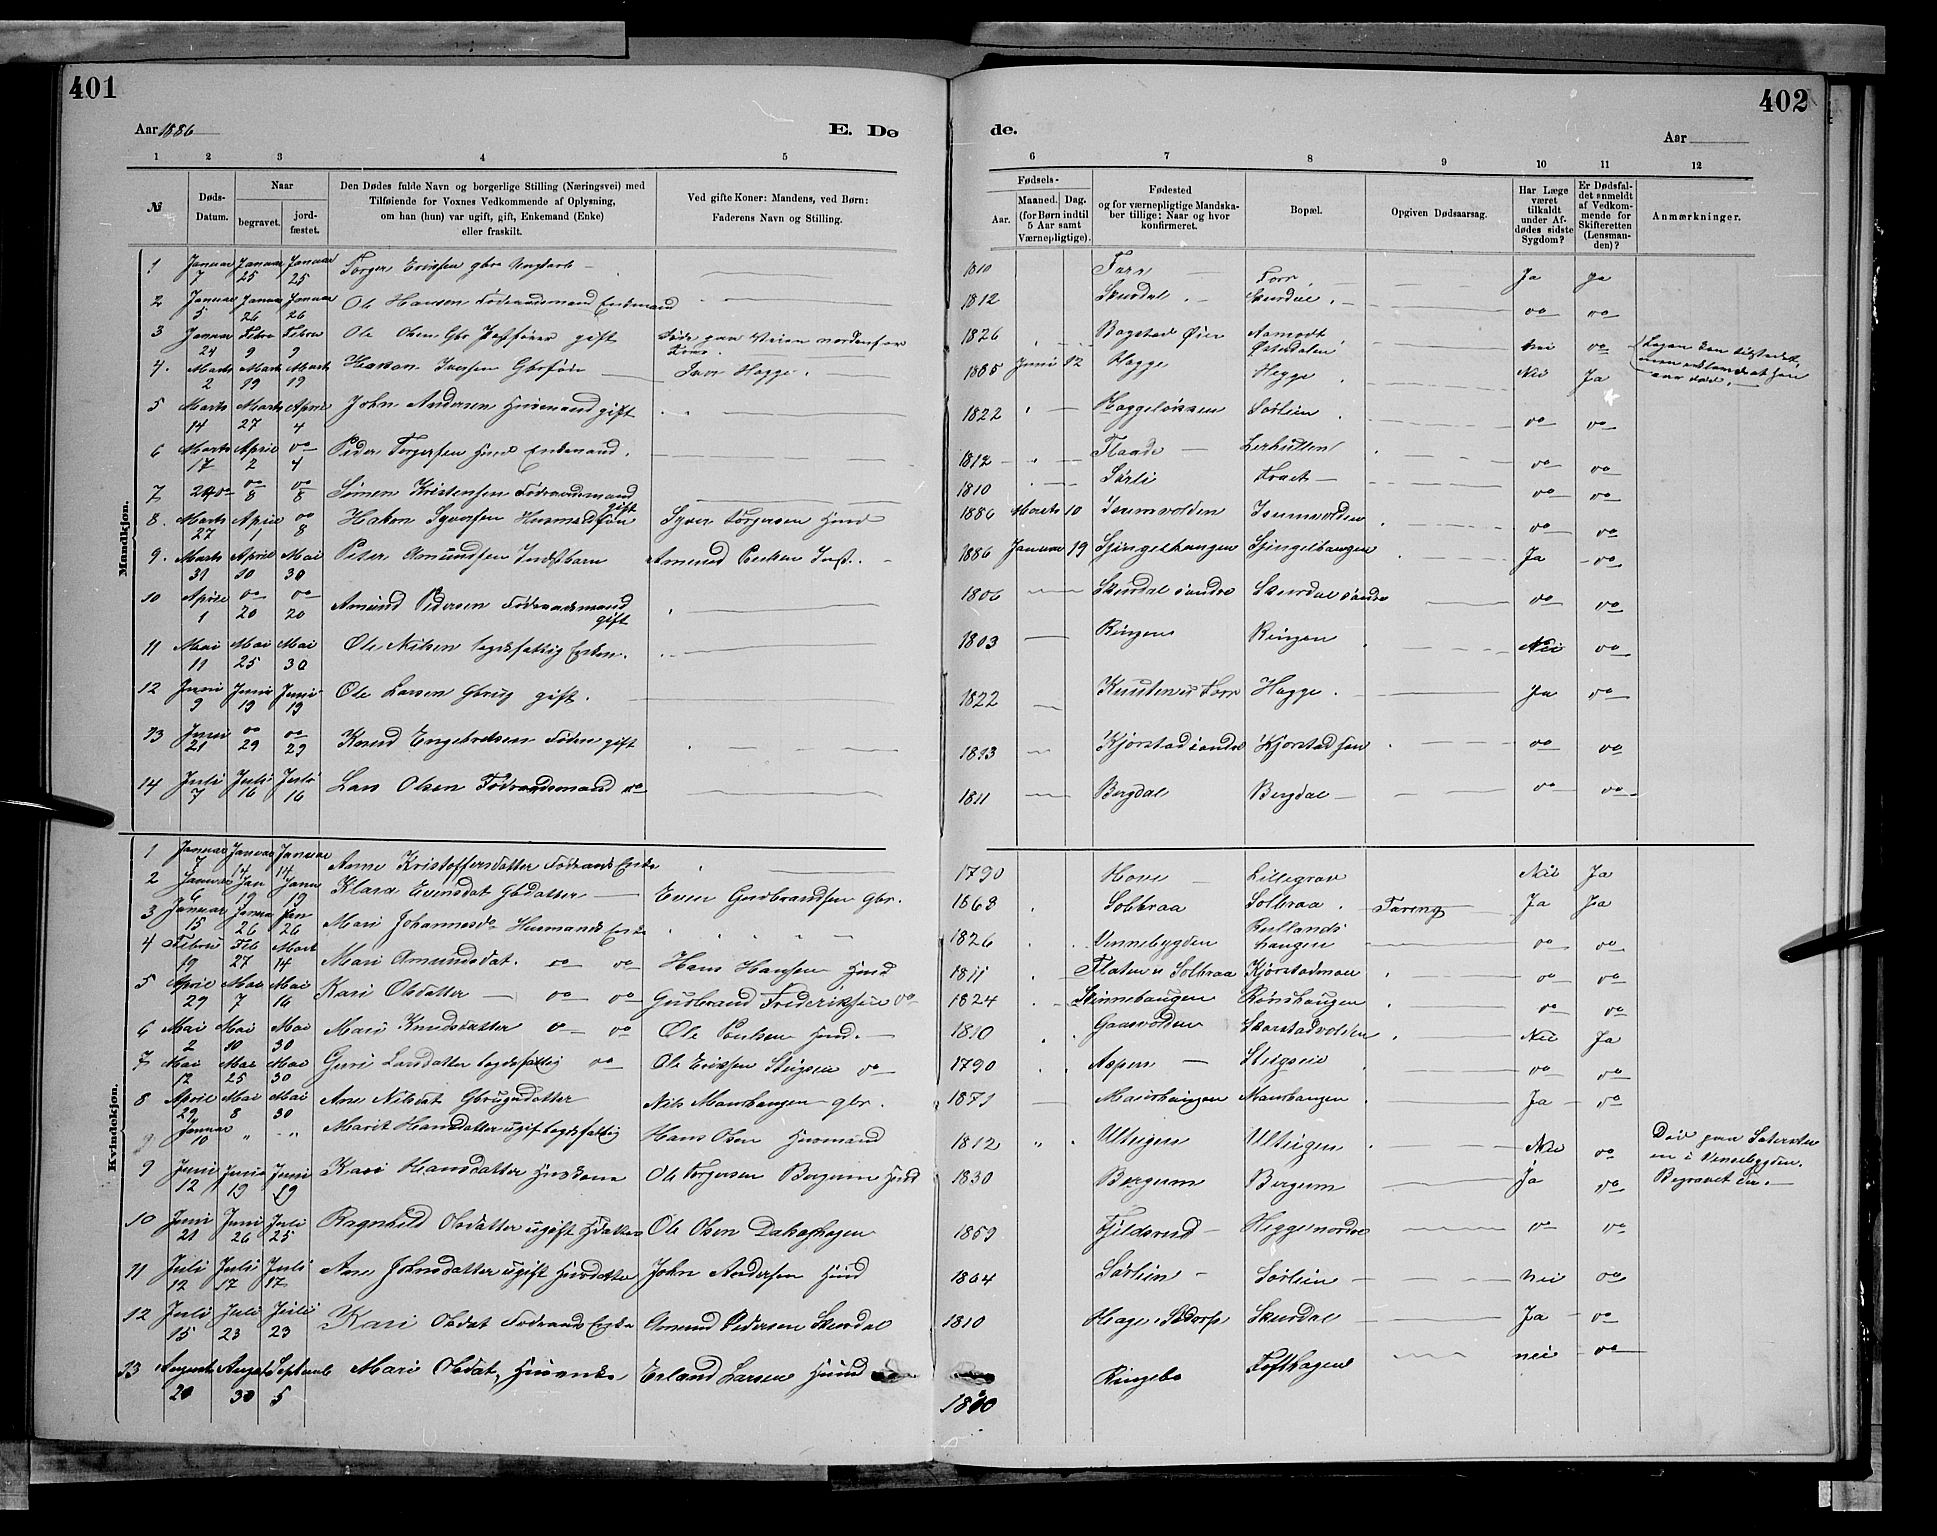 401
402
Aar 1886
E. Dø
de.
Aar
1 2 3 4 5
6 7 8 9 10 11 12
№
Døds-
Datum.
Naar
begravet.
jord-
fæstet.
Den Dødes fulde Navn og borgerlige Stilling (Næringsvei) med
Tilføiende for Voxnes Vedkommende af Oplysning,
om han (hun) var ugift, gift, Enkemand (Enke)
eller fraskilt.
Ved gifte Koner: Mandens, ved Børn:
Faderens Navn og Stilling.
Fødsels-
Aar.
Maaned. Dag.
(for Børn indtil
5 Aar samt
Værnepligtige).
Fødested
og for værnepligtige Mandska-
ber tillige: Naar og hvor
konfirmeret.
Bopæl.
Opgiven Dødsaarsag.
Har Læge
været
tilkaldt
under Af-
dødes sidste
Sygdom?
Er Dødsfal-
det anmeldt
af Vedkom-
mende for
Skifteretten
(Lensman-
den)?
Anmærkninger.
Mandkjøn.
1 Januar 7 Januar 25 Januar 25 Torger Eriksen 1810 Forr Forr Ja Ja
2 Januar 5 Janua 26 Janua 26 Ole Hansen Føderaadsmand Enkemand 1812 Skurdal Skurdal do do
3 Januar 24 Febru 9 Febru 9 Ole Olsen gift Døde paa Veien nordenfor 1826 Bagstad Øier Aamodt Østerdalen Nei do
4. Marts 2 Marts 19 Marts 19 Hakon Iversen Gbrsøn Iver Hagge. 1885 Juni 12 Hagge Hegge Nei Ja
5 Marts 14 Marts 27 April 4 John Andersen Husmand gift 1822 Haggeløkken Sørlien do do
6 Marts 17 April 2 do 4 Peder Torgersen Hmd Enkemand. 1812 Flaade Lerhutten do do
7 24 do do 8 do 8 Simen Kristensen Føderaadsmand gift 1810 Sørli do do
8. Marts 27 April 1 do 8 Hakon Syversen Husmadsøn Syver Torgersen Hmd 1886 Marts 10 Isumsvolden Isumsvolden do do
9. Marts 31 April 10 Mai 30 Peter Amundsen Indstbarn Amund Paulsen Inst. 1886 Januar 19 Sjingelhaugen Sjingelhaugen Ja do
10 April 1 do 20 do 20 Amund Pedersen Føderaadsmand gift 1806 Skurdal søndre Skurdal søndre do do
11 Mai 11 Mai 25 Mai 30 Ole Nilsen legdsfattig Enkem. 1803 Ringen Ringen Nei do
12 Juni 9 Juni 19 Juni 19 Ole Larsen Gbrug gift. 1822 Forr Hagge. Ja do
13 Juni 21 do 29 do 29 Knud Engebretsen gift 1813 Kjorstad søndre Kjorstad do do
14 Juli 7 Juli 16 Juli 16 Lars Olsen Føderaadsmand do 1811 Bergdal Bergdal do do
Kvindekjøn.
1 Januar 7 Januar 14 Januar 14 Anne Kristoffersdatter Føderaads Enke 1790 Hove Lillegrav Nei Ja
2 Januar 6 Jan 19 Janu 19 Klara Evensdat Gbdatter Even Gudbrandsen Gbr. 1868 Solbraa Solbraa Ja Ja
3 Januar 15 Janua 26 Jan 26 Mari Johannesda Husmands Enke 1826 Vinnebygden do do
4 Februr 19 Feb 27 Mart 14 Mari Amundsdat. do do Hans Hansen Hmd 1811 Flaten u Solbraa Kjorstadmoen do do
5 April 29 Mai 7 Mai 16 Kari Olsdatter do do Gudbrand Frederiksen do 1824 do do
6 Mai 2 Mai 10 Mai 30 Mari Knudsdatter do do Ole Paulsen Hmd. 1810 Gaasvolden Skarstadvolden Nei Ja
7 Mai 12 Mai 25 Mai 30 Guri Larsdatter legdsfattig do Ole Eriksen Stigseie do 1790 Aspen Stigseie do do
8 April 29 Mai 8 Mai 30 Ane Nilsdat Gbrugsdatter Nils Maurhaugen gbr. 1871 Maurhaugen Maurhaugen Ja do
9 Januar 10 " " Marit Hansdatter ugift legdsfattig Hans Olsen Husmand 1812 " Ulteigen Ulteigen Nei do
9 Juni 12 Juni 19 Juni 19 Kari Hansdatter Huskone Ole Torgersen Bergum Hmd 1830 Bergum Bergum Ja do
Død paa
en i Vinnebygden.
Begravet der.
10 Juni 21 Juni 26 Juli 25 Ragnhild Olsdatter ugift Ole Olsen 1859 Fjeldsrud Hegge nordre do do
11 Juli 12 Juli 17 Juli 17 Ane Johnsdatter ugift Husdatter John Andersen Hmd 1864 Sørlien Sørlien Nei do
12 Juli 15 Juli 23 Juli 23 Kari Olsdat Føderaads Enke Amund Pedersen Skurdal 1810 Skurdal Ja do
13 August 20 August 30 Septemb 5 Mari Olsdat, Husenke Erland Larsen Husmd Ringebo Tofthagen Nei do
1810